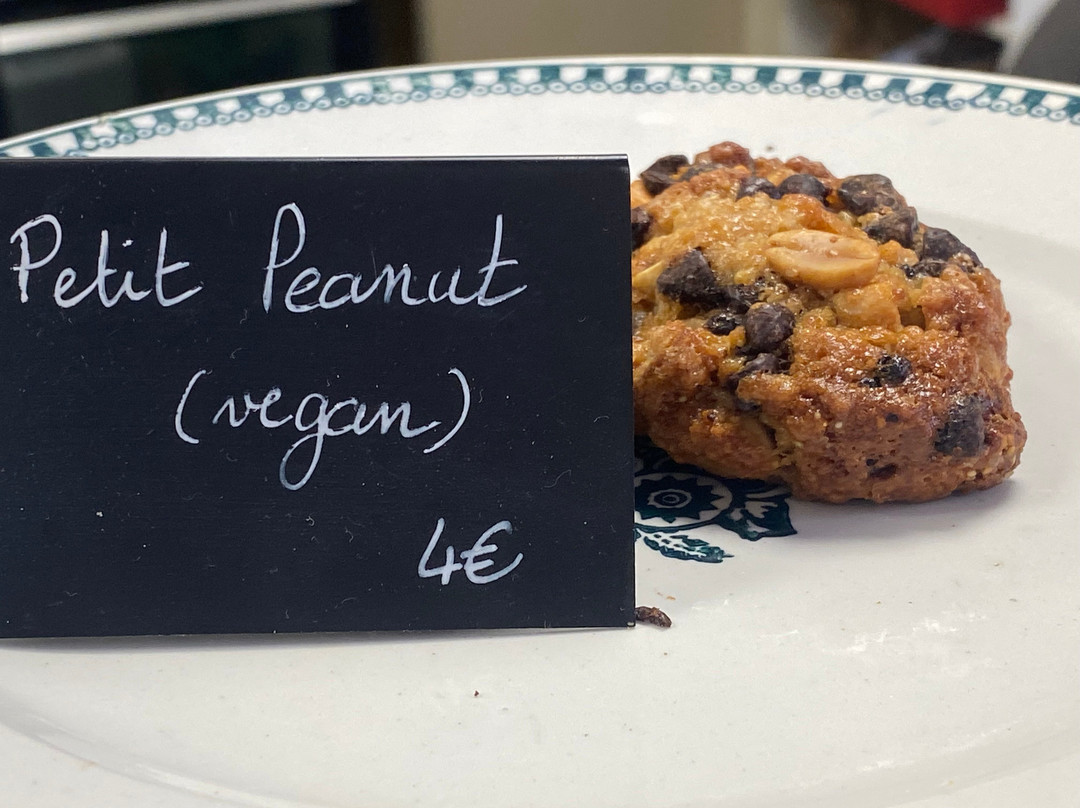 Petit Peanut
(vegan)
4€